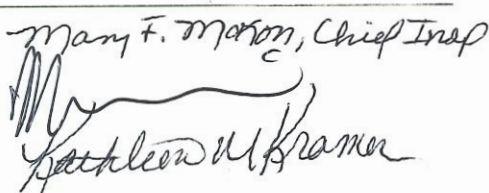 Mary F. McKon, Chief Insp
Kathleen M Kramer